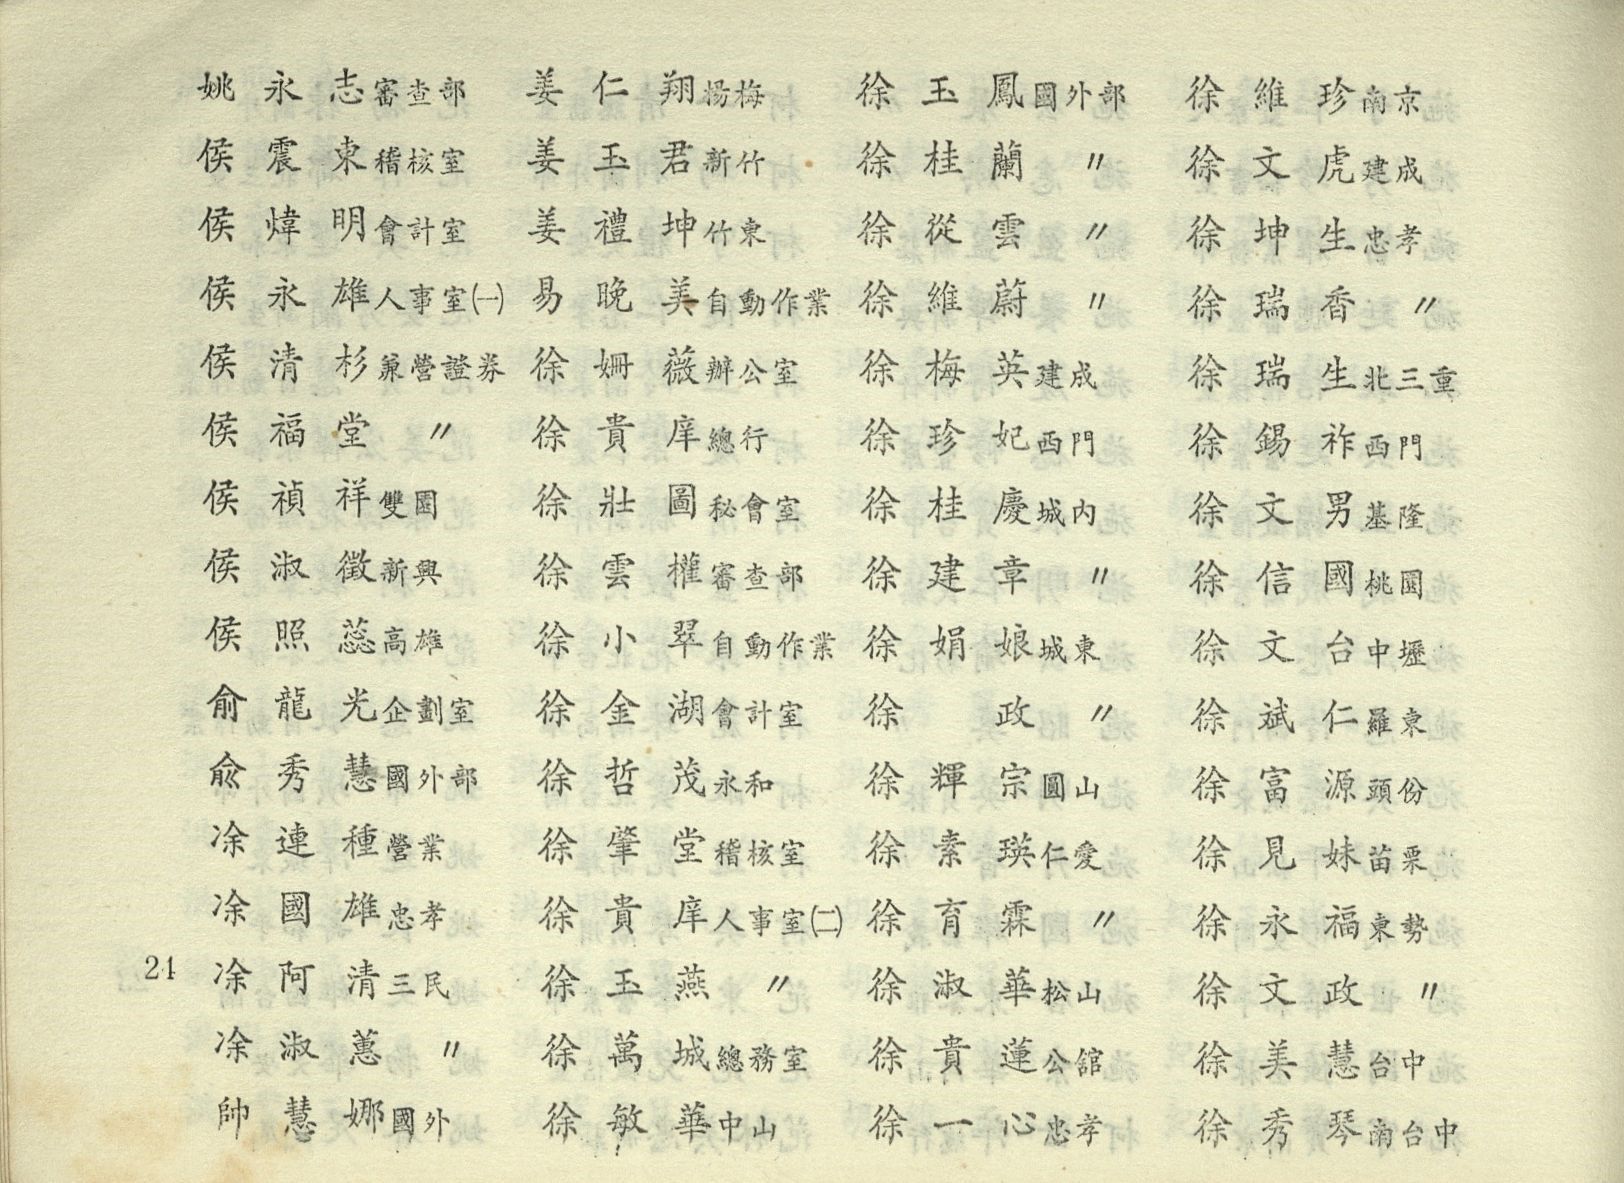 姚永志審查部
侯震東稽核室
侯煒明會計室
侯永雄人事室㈠
侯清杉兼營證券
侯福堂〃
侯禎祥雙園
侯淑徵新興
侯照蕊高雄
俞龍光企劃室
俞秀慧國外部
凃連種營業
凃國雄忠孝
凃阿清三民
凃淑蕙〃
帥慧娜國外
姜仁翔楊梅
姜玉君新竹
姜禮坤竹東
易晚美自動作業
徐姍薇辦公室
徐貴庠總行
徐壯圖秘會室
徐雲權審查部
徐小翠自動作業
徐金湖會計室
徐哲茂永和
徐肇堂稽核室
徐貴庠人事室㈡
徐玉燕〃
徐萬城總務室
徐敏華中山
徐玉鳳國外部
徐桂蘭〃
徐從雲〃
徐維蔚〃
徐梅英建成
徐珍妃西門
徐桂慶城內
徐建章〃
徐娟娘城東
徐政〃
徐輝宗圓山
徐素瑛仁愛
徐育霖〃
徐淑華松山
徐貴蓮公館
徐一心忠孝
徐維珍南京
徐文虎建成
徐坤生忠孝
徐瑞香〃
徐瑞生北三重
徐錫祚西門
徐文男基隆
徐信國桃園
徐文台中壢
徐斌仁羅東
徐富源頭份
徐見妹苗栗
徐永福東勢
徐文政〃
徐美慧台中
徐秀琴南台中
21